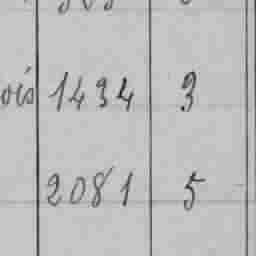 ois 1434 3
2081 5